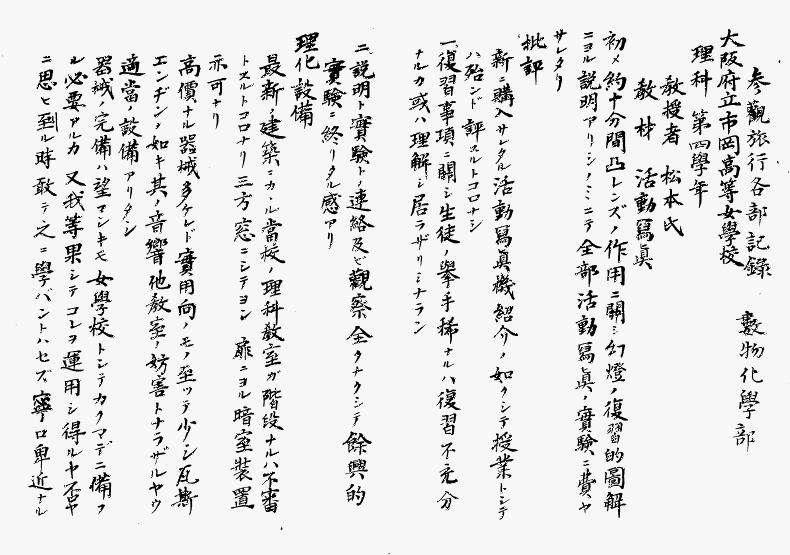 参觀旅行各部記錄　數物化學部
大阪府立市岡高等女學校
理科　第四學年
教授者　松本氏
教材　活動寫眞
初メ約十分間凸レンズノ作用ニ關シ幻燈ノ復習的圖解
ニヨル説明アリシノミニテ全部活動寫眞ノ實驗ニ費ヤ
サレタリ
批評
新ニ購入サレタル活動寫眞機紹介ノ如クシテ授業トシテ
ハ殆ンド評スルトコロナシ
一、復習事項ニ關シ生徒ノ擧手稀ナルハ復習不充分
ナルカ或ハ理解シ居ラザリシナラン
二、説明ト實驗トノ連絡及ビ觀察全クナクシテ餘興的
實驗ニ終リタル感アリ
理化設備
最新ノ建築ニカヽル當校ノ理科教室ガ階段ナルハ不審
トスルトコロナリ三方窓ニシテヨシ　扉ニヨル暗室裝置
亦可ナリ
高價ナル器械多ケレド實用向ノモノ至ッテ少シ瓦斯
エンヂンノ如キ其ノ音響他教室ノ妨害トナラザルヤウ
適當ノ設備アリタシ
器械ノ完備ハ望マシキモ女學校トシテカクマデニ備フ
ル必要アルカ又我等果シテコレヲ運用シ得ルヤ否ヤ
ニ思ヒ到ル時敢テ之ニ學バントハセズ寧ロ卑近ナル